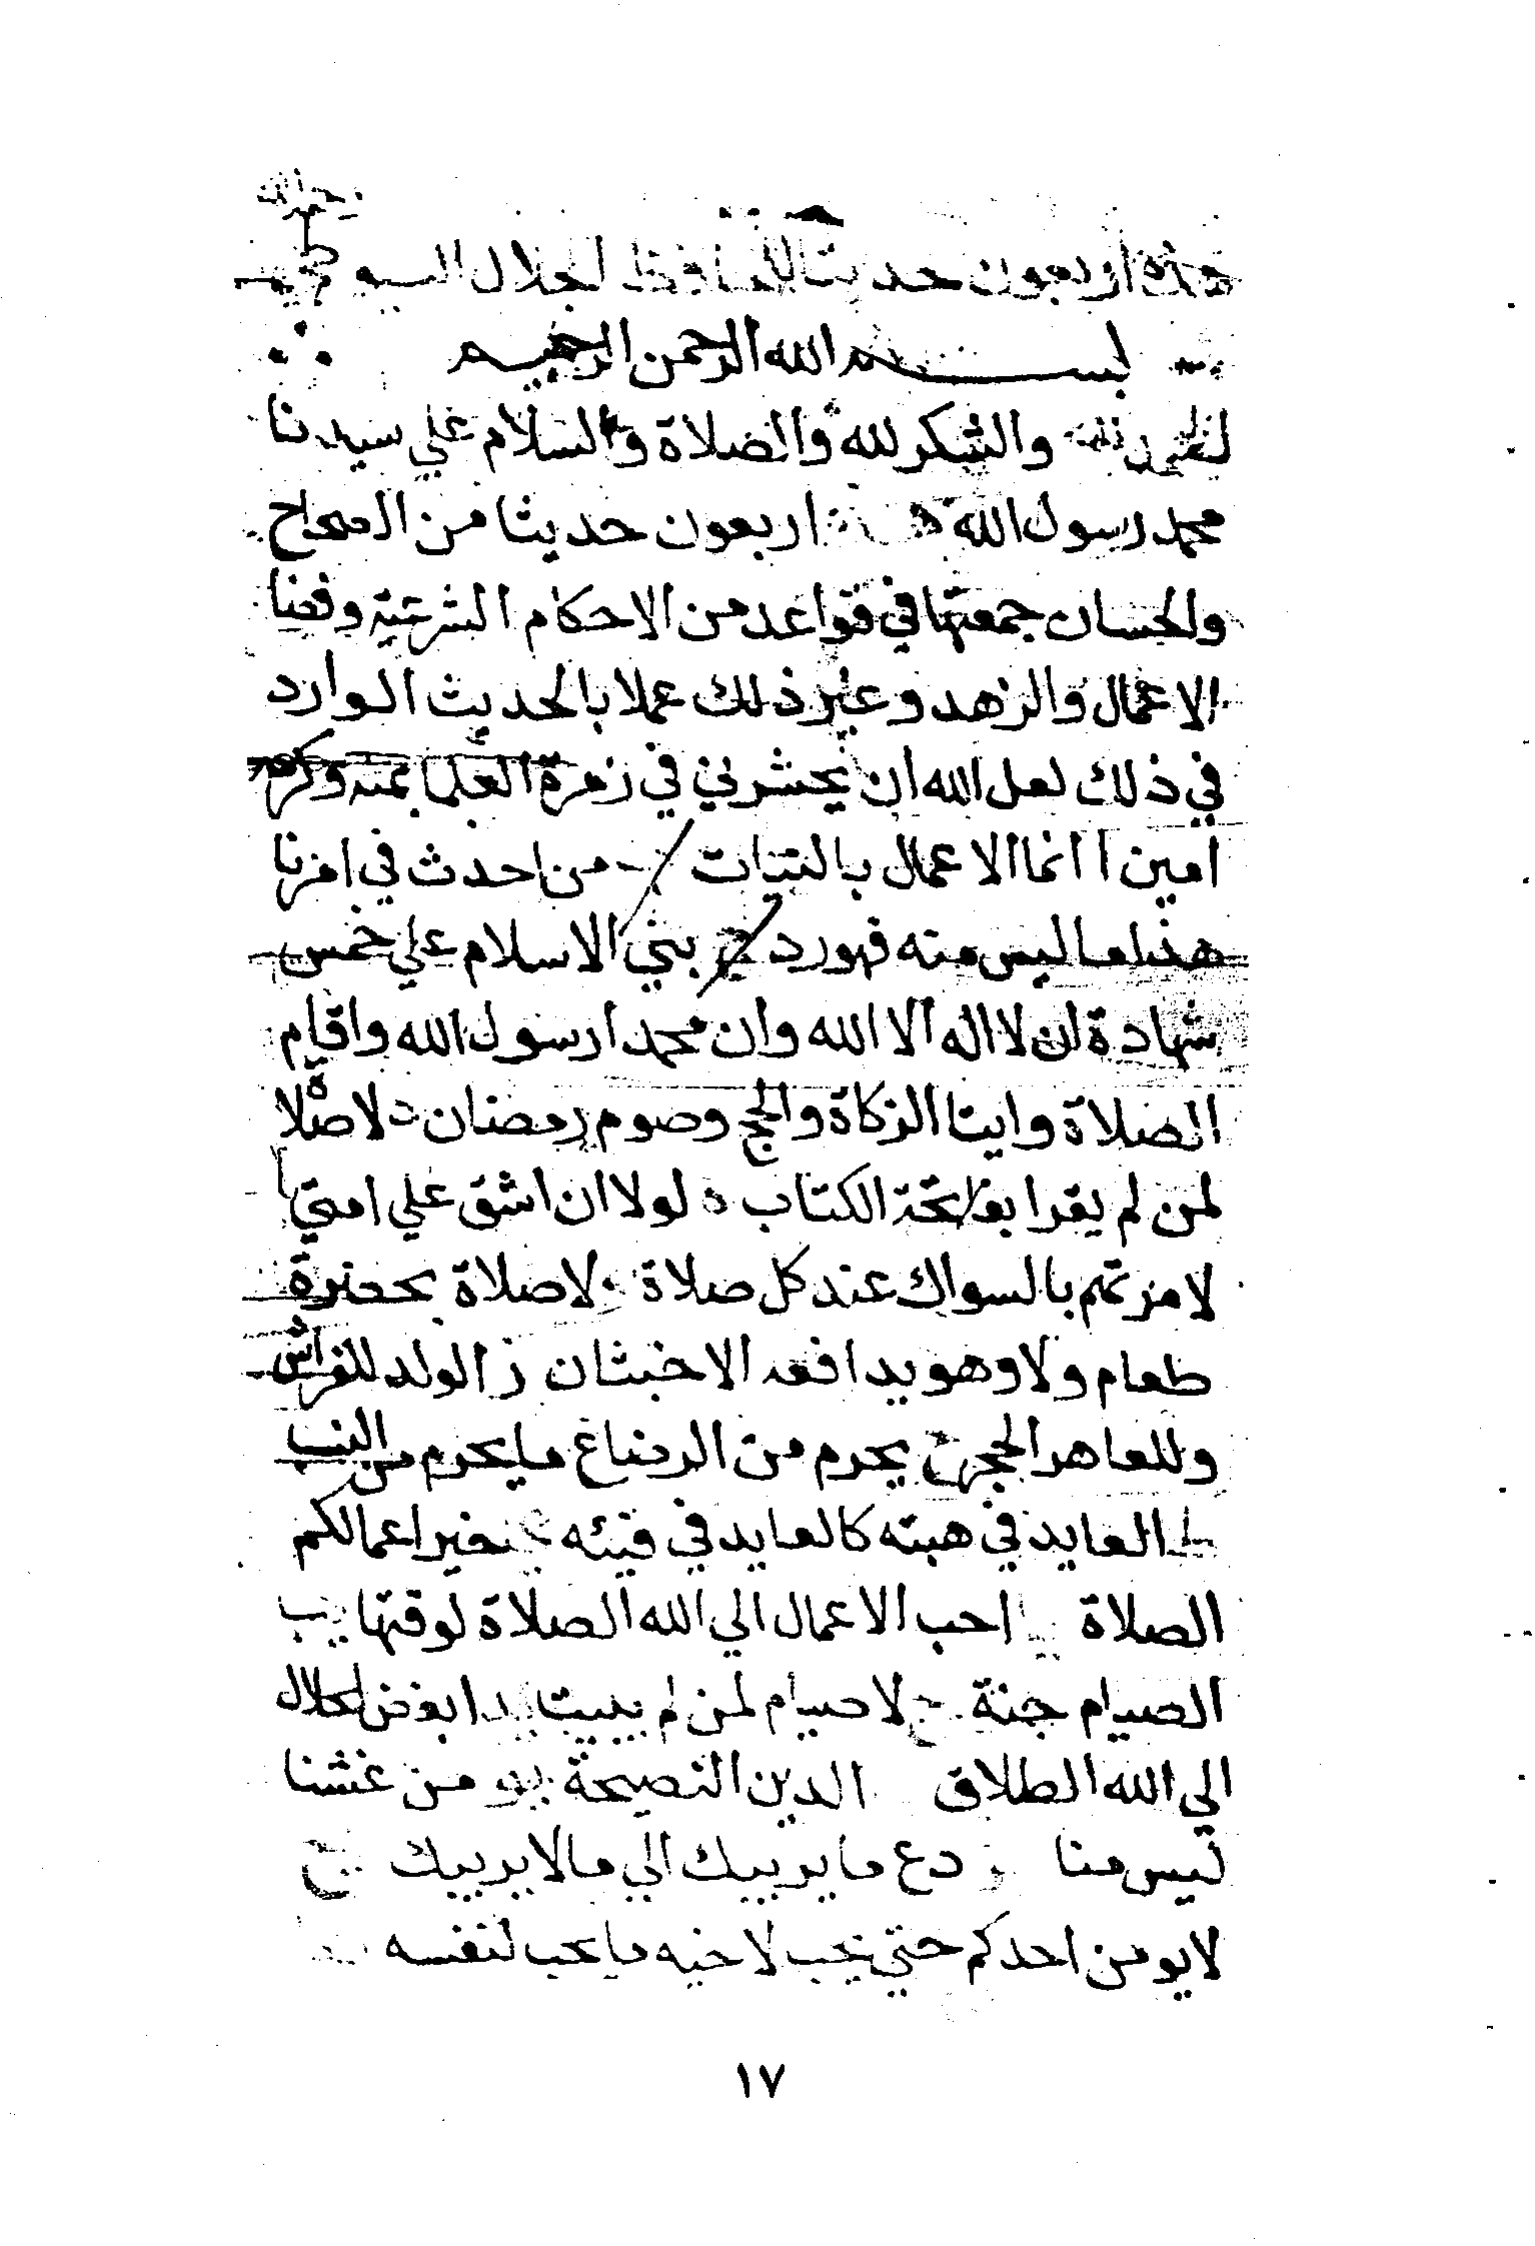 رحمه الله
هذه اربعون حديثا للحافظ الجلال السيوطي
بسم الله الرحمن الرحيم
الحمد لله والشكر لله والصلاة والسلام علي سيدنا
محمد رسول الله اربعون حديثا من الصحاح
والحسان جمعتها في قواعد من الاحكام الشرعية وفضا
الاعمال والزهد وغير ذلك عملا بالحديث الوارد
في ذلك لعل الله ان يحشرني في زمرة العلما بمنه وكرمه
امين ا انما الاعمال بالنيات ب من احدث في امرنا
هذا ما ليس منه فهو رد ج بني الاسلام علي خمس
شهادة ان لا اله الا الله وان محمدا رسول الله واقام
الصلاة وايتا الزكاة والحج وصوم رمضان د لا صلاة
لمن لم يقرا بفاتحة الكتاب ه لولا ان اشق علي امتي
لامرتهم بالسواك عند كل صلاة و لا صلاة بحضرة
طعام ولا وهو يدافعه الاخبثان ز الولد للفراش
وللعاهر الحجر ح يحرم من الرضاع ما يحرم من النسب
ط العايد في هبته كالعايد في قيئه ي خير اعمالكم
الصلاة يا احب الاعمال الي الله الصلاة لوقتها يب
الصيام جنة يج لا صيام لمن لم يبيت يد ابغض الحلال
الي الله الطلاق الدين النصيحة يو من غشنا
ليس منا يز دع ما يريبك الي ما لا يريبك يح
لا يومن احدكم حتي يحب لاخيه ما يحب لنفسه
١٧